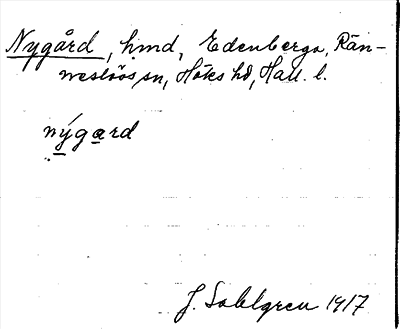 Nygård, hmd, Edenberga, Rän-
neslövs sn, Höks hd, Hall. l.
nýgard
J. Sahlgren 1917